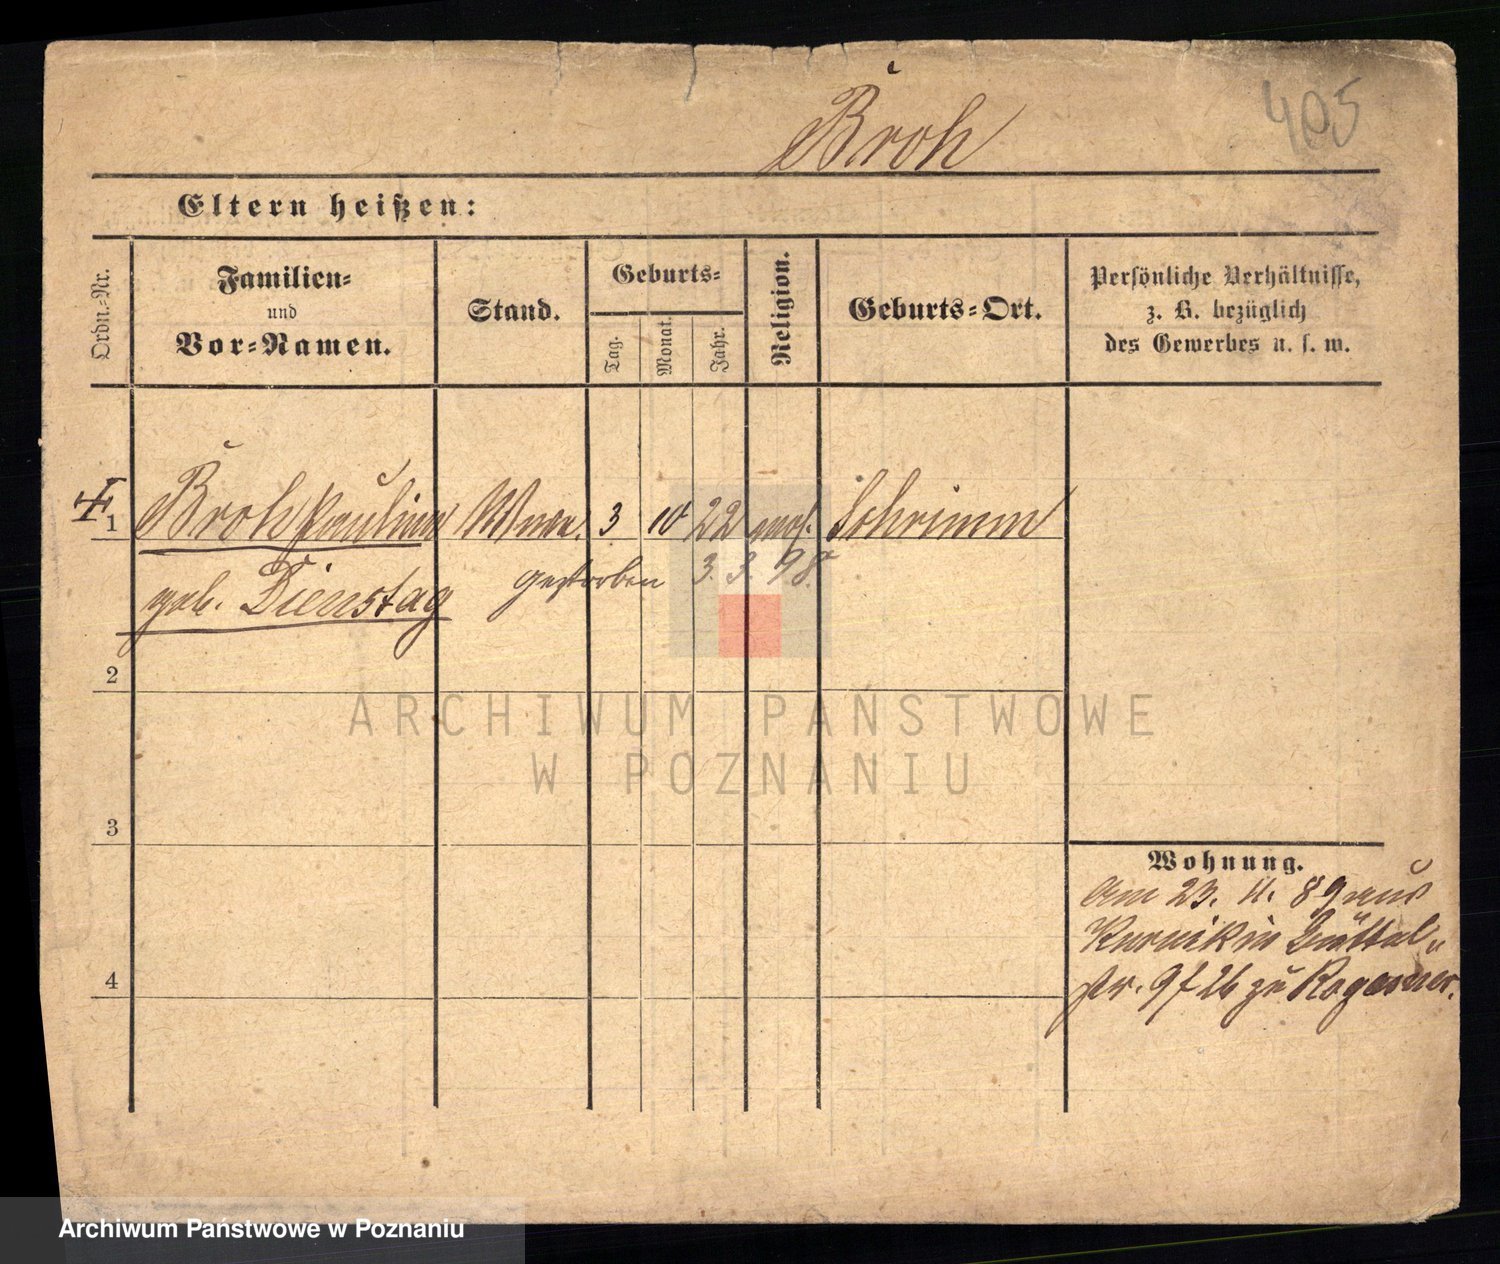 Broh
405
Eltern heißen:
Ordn.-Nr.
Familien-
und
Vor-Namen.
Stand.
Geburts-
Tag.
Monat.
Jahr.
Religion.
Geburts-Ort.
Persönliche Verhältnisse,
z. B. bezüglich
des Gewerbes u. s. w.
1 Broh Pauline Wwe. 3 10 22 mos. Schrimm
geb. Dienstag gestorben 3. 3. 98.
2
3
4
Wohnung.
Am 23. 11. 89 aus
Kurnik in Büttel-
str. 9/ 26 zu Rogasner.
ARCHIWUM PAŃSTWOWE
W POZNANIU
Archiwum Państwowe w Poznaniu